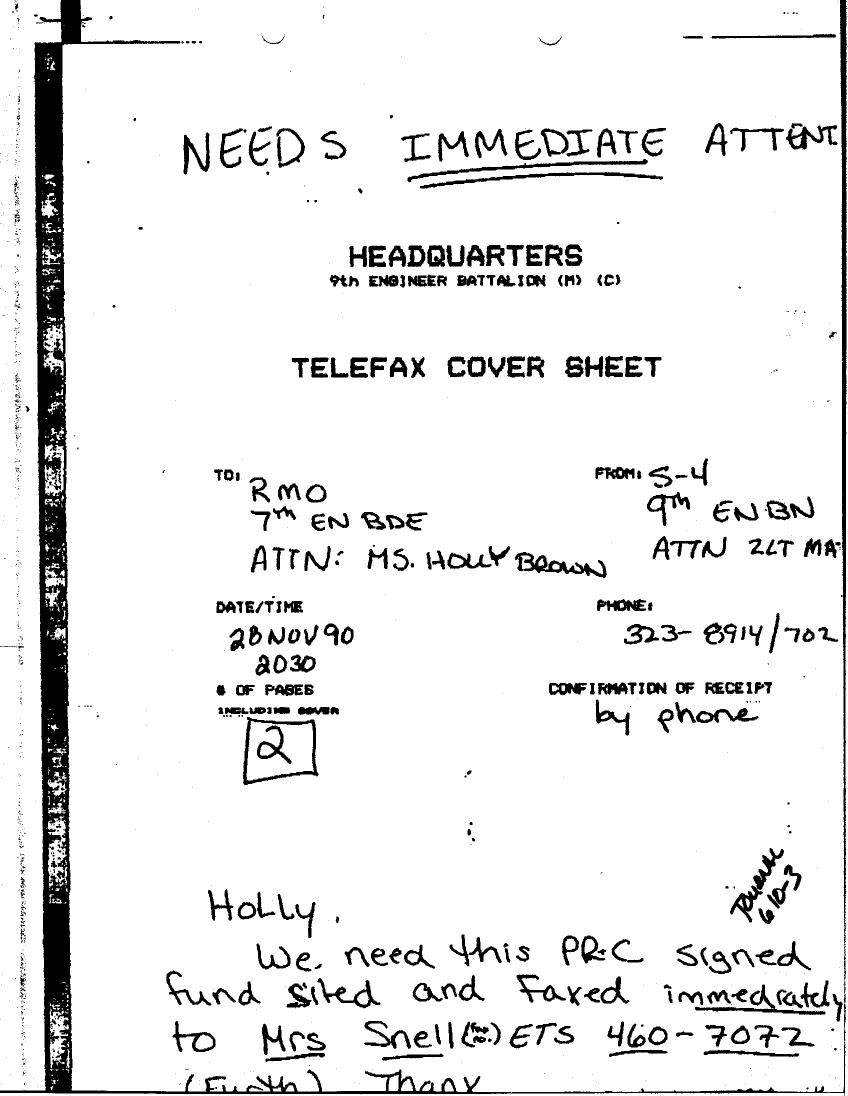 NEEDS IMMEDIATE ATTENT
HEADQUARTERS
9th ENGINEER BATTALION (M) (C)
TELEFAX COVER SHEET
TO: RMO
7TH EN BDE
ATTN: MS. HOLLY BROWN
FROM: S-4
9TH EN BN
ATTN 2LT MA
DATE/TIME
28 NOV 90
2030
PHONE:
323-8914/702
# OF PAGES
INCLUDING COVER
2
CONFIRMATION OF RECEIPT
by phone
610-3
Holly,
We need this PR&C signed
fund sited and faxed immediately
to Mrs Snell ETS 460-7072
(Fürth) Thank